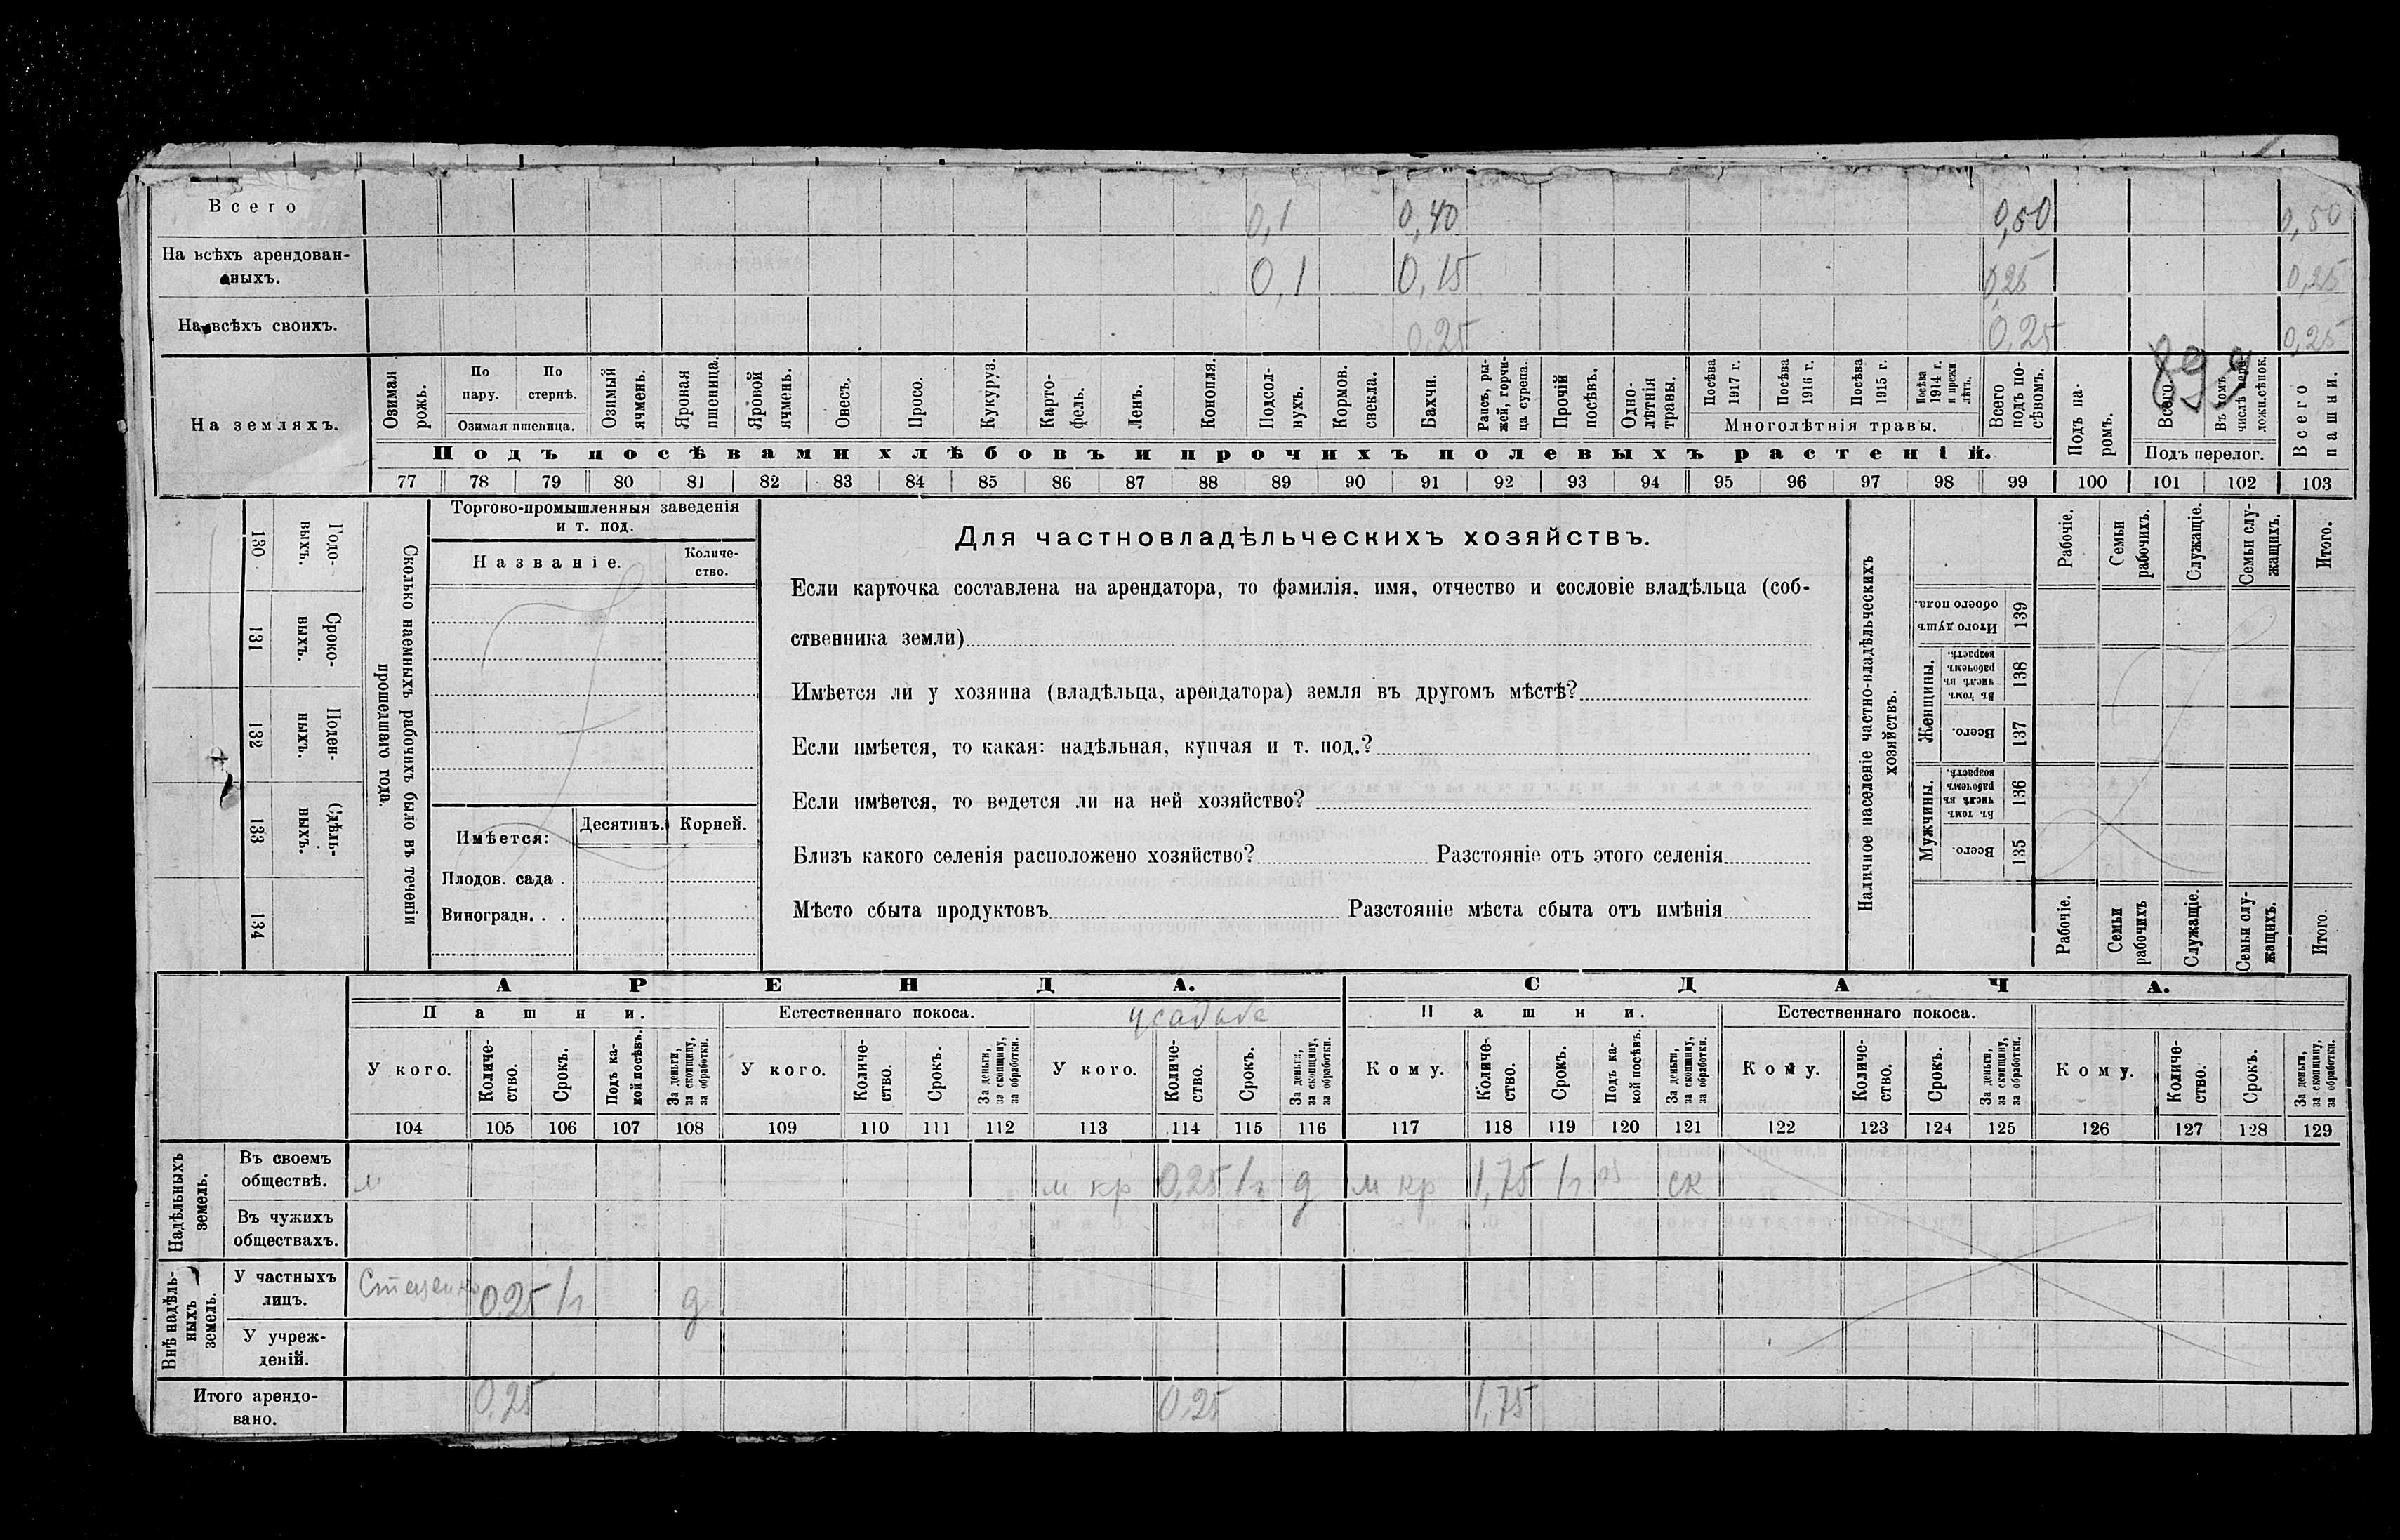 Всего 0,1 0,40 0,50 0,50
На всѣхъ арендован-
ныхъ. 0,1 0,15 0,25 0,25
На всѣхъ своихъ. 0,25 0,25 0,25
899
На земляхъ.
Озимая рожь.
По пару.
По стернѣ.
Озимая пшеница.
Озимый ячмень.
Яровая пшеница.
Яровой ячмень.
Овесъ.
Просо.
Кукуруз.
Карто-
фель.
Ленъ.
Конопля.
Подсол-
нухъ.
Кормов. свекла.
Бахчи.
Рапсъ, ры-
жей, горчи-
ца сурепа.
Прочій посѣвъ.
Одно-
лѣтнія травы.
Посѣва 1917 г.
Посѣва 1916 г.
Посѣва 1915 г.
Посѣва 1914 г. и прежн лѣтъ.
Многолѣтнія травы.
Всего подъ по-
сѣвомъ.
Подъ па-
ромъ.
Всего
Въ томъ числѣ
Подъ перелог.
Всего пашни.
Подъ посѣвами хлѣбовъ и прочихъ полевыхъ растеній.
77 78 79 80 81 82 83 84 85 86 87 88 89 90 91 92 93 94 95 96 97 98 99 100 101 102 103
130 Годо-
выхъ.
131 Сроко-
выхъ.
132 Поден-
ныхъ.
133 Сдѣль-
ныхъ.
134
Сколько наемныхъ рабочихъ было въ теченіи
прошедшаго года.
Торгово-промышленныя заведенія
и т. под.
Названіе.
Количе-
ство.
Имѣется: Десятинъ. Корней.
Плодов. сада .
Виноградн. . .
Для частновладѣльческихъ хозяйствъ.
Если карточка составлена на арендатора, то фамилія, имя, отчество и сословіе владѣльца (соб-
ственника земли)
Имѣется ли у хозяина (владѣльца, арендатора) земля въ другомъ мѣстѣ?
Если имѣется, то какая: надѣльная, купчая и т. под.?
Если имѣется, то ведется ли на ней хозяйство?
Близъ какого селенія расположено хозяйство? Разстояніе отъ этого селенія
Мѣсто сбыта продуктовъ Разстояніе мѣста сбыта отъ имѣнія
Наличное населеніе частно-владѣльческихъ
хозяйствъ.
Рабочіе.
Семьи рабочихъ.
Служащіе.
Семьи слу-
жащихъ.
Итого.
Итого душъ обоего пола. 139
Женщины.
Въ томъ числѣ въ рабочемъ возрастѣ. 138
Всего. 137
Мужчины.
Въ томъ числѣ въ рабочемъ возрастѣ. 136
Всего. 135
Рабочіе.
Семьи рабочихъ
Служащіе.
Семьи слу-
жащихъ.
Итого.
АРЕНДА. СДАЧА.
Пашни. Естественнаго покоса. усадьба Пашни. Естественнаго покоса.
У кого. Количе-
ство. Срокъ. Подъ ка-
кой посѣвъ. За деньги, за скопщину, за обработки.
У кого. Количе-
ство. Срокъ. За деньги, за скопщину, за обработки.
У кого. Количе-
ство. Срокъ. За деньги, за скопщину, за обработки.
Кому. Количе-
ство. Срокъ. Подъ ка-
кой посѣвъ. За деньги, за скопщину, за обработки.
Кому. Количе-
ство. Срокъ. За деньги, за скопщину, за обработки.
Кому. Количе-
ство. Срокъ. За деньги, за скопщину, за обработки.
104 105 106 107 108 109 110 111 112 113 114 115 116 117 118 119 120 121 122 123 124 125 126 127 128 129
Надѣльныхъ земель.
Въ своемъ
обществѣ. м м кр 0,25 1г д м кр 1,75 1г ск
Въ чужихъ
обществахъ.
Внѣ надѣль-
ныхъ земель.
У частныхъ
лицъ. 0.25 1г д
У учреж-
деній.
Итого арендо-
вано. 0,25 0,25 1,75